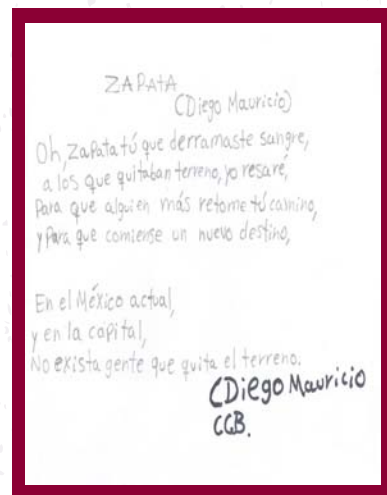 ZAPATA
(Diego Mauricio)
Oh, Zapata tú que derramaste sangre,
a los que quitaban terreno, yo resaré,
Para que alguien más retome tú camino,
y Para que comiense un nuevo destino,
En el México actual,
y en la capital,
No exista gente que quita el terreno.
(Diego Mauricio
CGB.